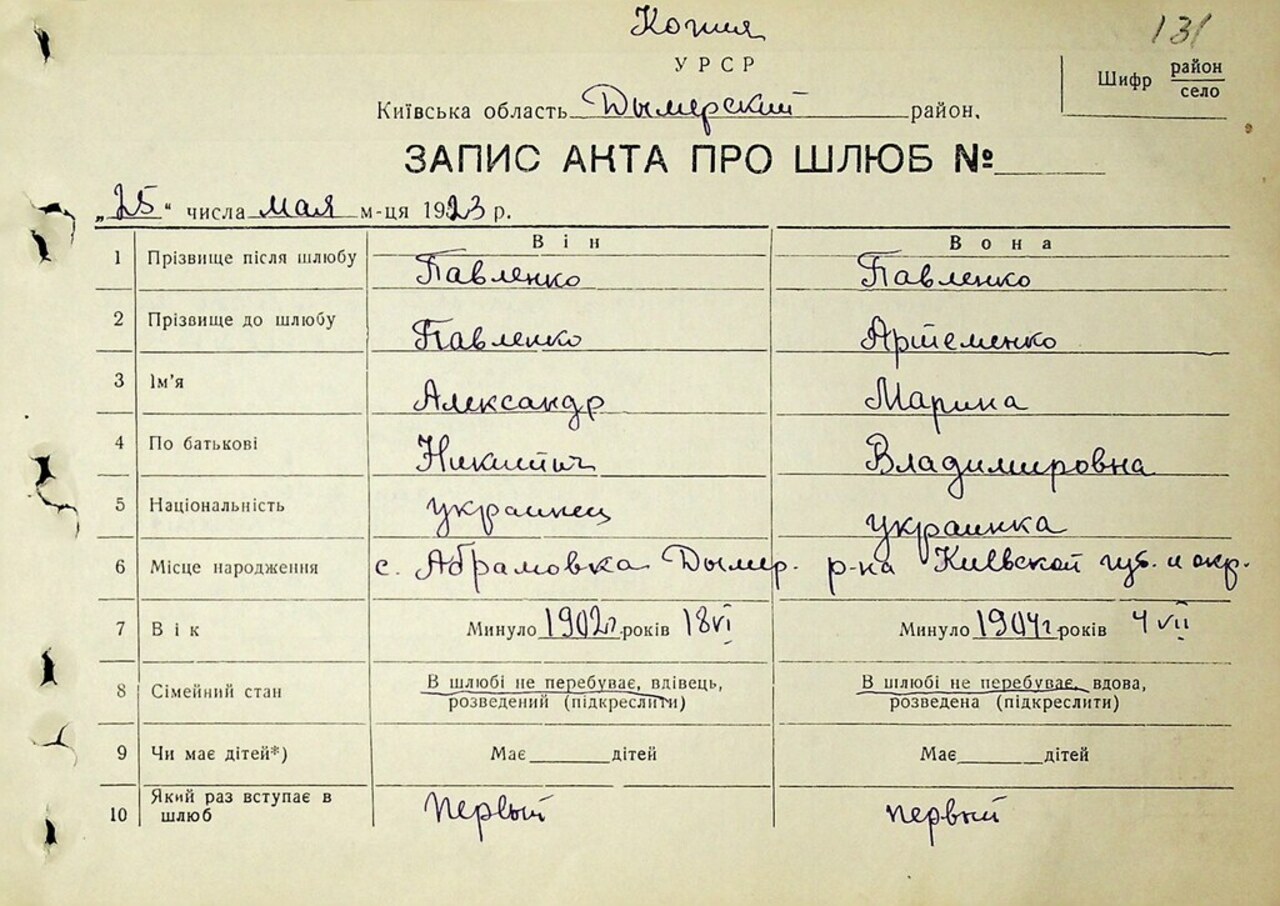 Копия
131
УРСР
Шифр район
село
Київська область Дымерский район.
ЗАПИС АКТА ПРО ШЛЮБ №
„25“ числа мая м-ця 1923 р.
Він Вона
1 Прізвище після шлюбу Павленко Павленко
2 Прізвище до шлюбу Павленко Артеменко
3 Ім'я Александр Марина
4 По батькові Никитич Владимировна
5 Національність украинец украинка
6 Місце народження с. Абрамовка Дымер. р-на Киевской губ. и окр.
7 Вік Минуло 1902г. років 18 VI Минуло 1904г. років 4 VII
8 Сімейний стан В шлюбі не перебуває, вдівець, В шлюбі не перебуває, вдова,
розведений (підкреслити) розведена (підкреслити)
9 Чи має дітей*) Має дітей Має дітей
10 Який раз вступає в шлюб первый первый